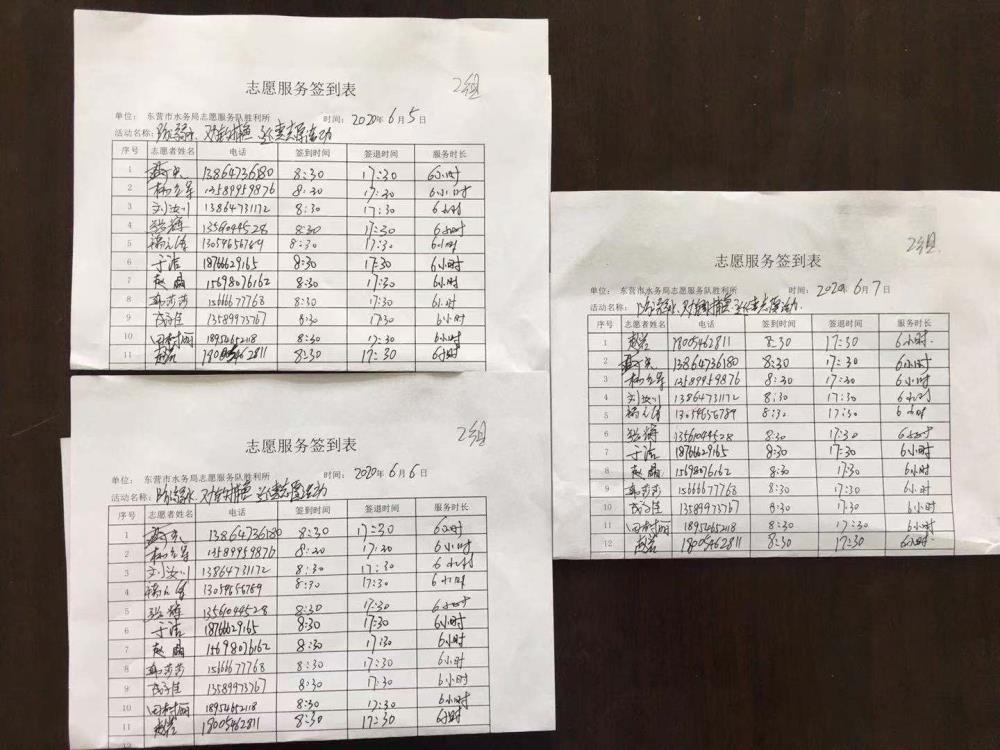 2组
志愿服务签到表
单位： 东营市水务局志愿服务队胜利所 时间： 2020年6月5日
活动名称：
序号 志愿者姓名 电话 签到时间 签退时间 服务时长
1 13864736180 8:30 17:30 6小时
2 13589959876 8:30 17:30 6小时
3 刘汝川 13864731172 8:30 17:30 6小时
4 张辉 13561044528 8:30 17:30 6小时
5 13054656789 8:30 17:30 6小时
6 于洁 18766629165 8:30 17:30 6小时
7 赵晶 15698076162 8:30 17:30 6小时
8 郭莎莎 15666677768 8:30 17:30 6小时
9 13589973767 8:30 17:30 6小时
10 田树丽 18954652118 8:30 17:30 6小时
11 8:30 17:30 6小时
2组
志愿服务签到表
单位： 东营市水务局志愿服务队胜利所 时间： 2020年6月6日
活动名称：
序号 志愿者姓名 电话 签到时间 签退时间 服务时长
1 13864736180 8:30 17:30 6小时
2 13589959876 8:30 17:30 6小时
3 刘汝川 13864731172 8:30 17:30 6小时
4 13054656789 8:30 17:30 6小时
5 张辉 13561044528 8:30 17:30 6小时
6 于洁 18766629165 8:30 17:30 6小时
7 赵晶 15698076162 8:30 17:30 6小时
8 郭莎莎 15666677768 8:30 17:30 6小时
9 13589973767 8:30 17:30 6小时
10 田树丽 18954652118 8:30 17:30 6小时
11 18005462811 8:30 17:30 6小时
12
2组
志愿服务签到表
单位： 东营市水务局志愿服务队胜利所 时间： 2020年6月7日
活动名称：
序号 志愿者姓名 电话 签到时间 签退时间 服务时长
1 18005462811 8:30 17:30 6小时
2 13864736180 8:30 17:30 6小时
3 13589959876 8:30 17:30 6小时
4 刘汝川 13864731172 8:30 17:30 6小时
5 13054656789 8:30 17:30 6小时
6 张辉 13561044528 8:30 17:30 6小时
7 于洁 18766629165 8:30 17:30 6小时
8 赵晶 15698076162 8:30 17:30 6小时
9 郭莎莎 15666677768 8:30 17:30 6小时
10 13589973767 8:30 17:30 6小时
11 田树丽 18954652118 8:30 17:30 6小时
12 18005462811 8:30 17:30 6小时